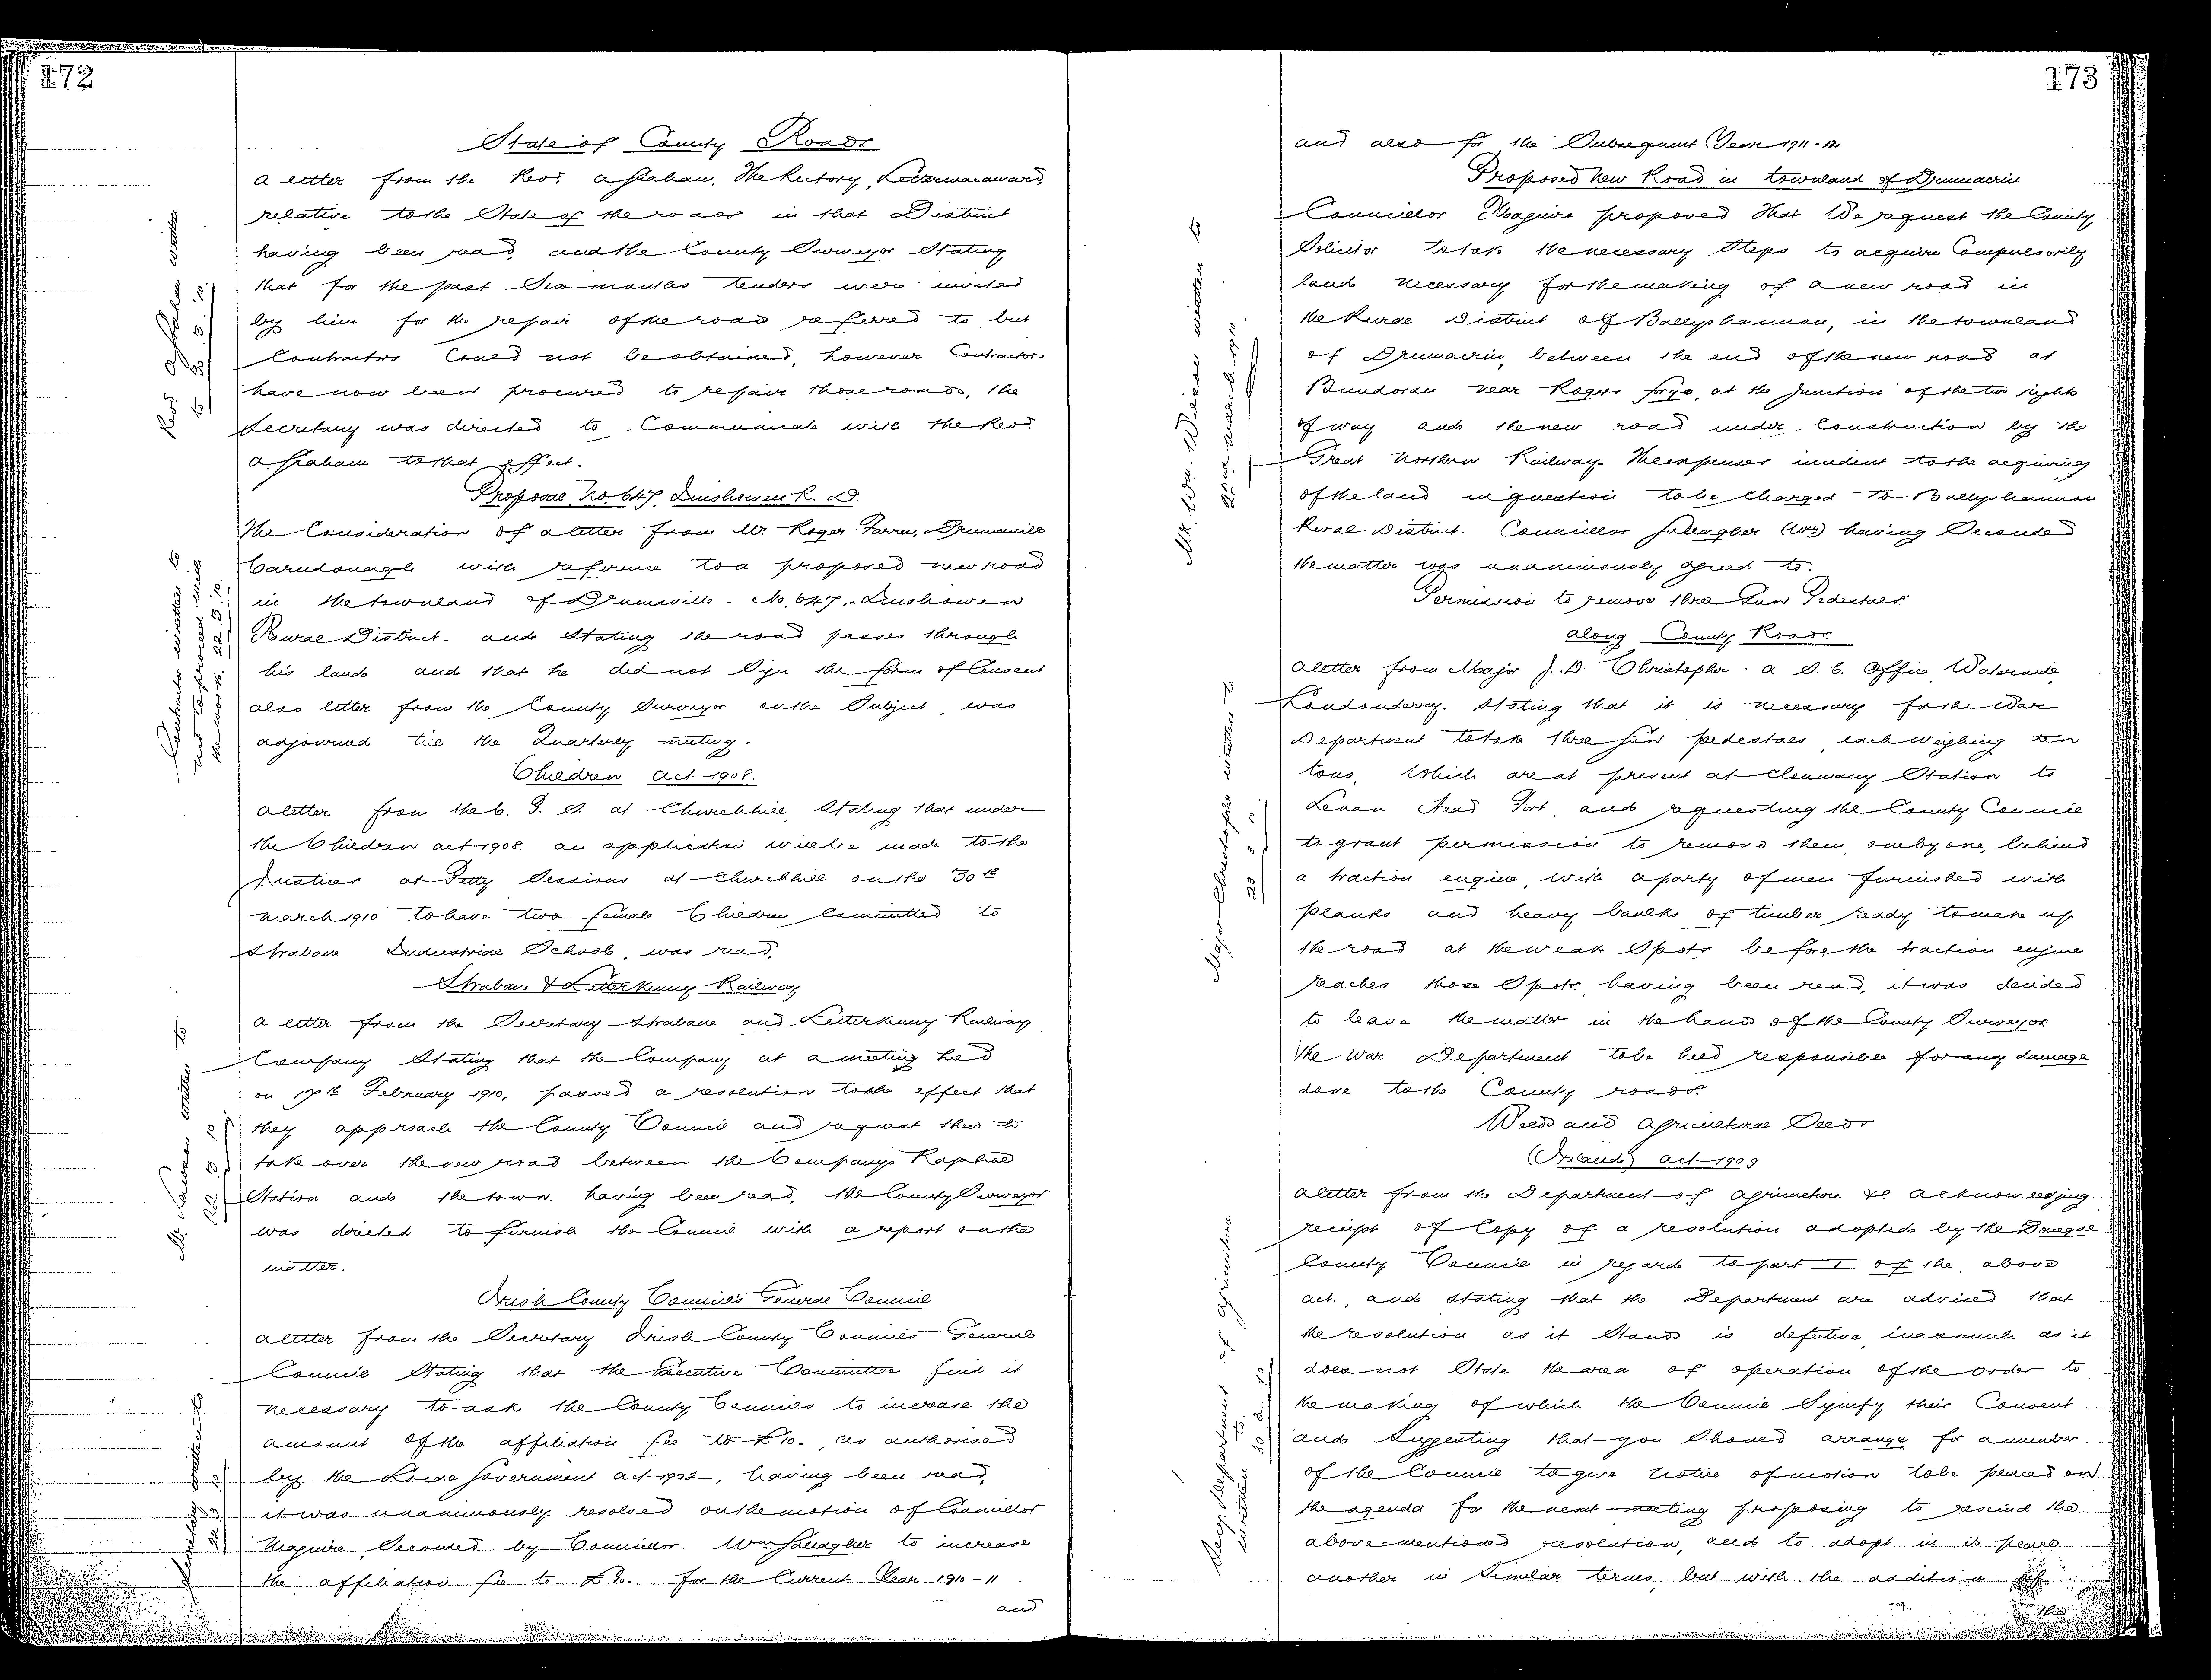 172
State of County Roads
a letter from the Revd. A Graham, The Rectory, Lettermacaward,
relative to the State of the roads in that District
having been read, and the County Surveyor Stating
that for the past Six months tenders were invited
by him for the repair of the road referred to but
Contractors Could not be obtained, however Contractors
have now been procured to repair those roads, the
Secretary was directed to Communicate with the Revd.
A Graham to that effect.
Revd. A Graham written
to 22/3/10.
Proposal No. 647, Inishowen R. D.
The Consideration of a letter from Mr. Roger Farren, Drumaville
Carndonagh with reference to a proposed new road
in the townland of Drumaville. No. 647, Inishowen
Rural District. and Stating the road passes through
his lands and that he did not Sign the form of Consent
also letter from the County Surveyor on the Subject, was
adjourned till the Quarterly meeting.
Contractor written to
not to proceed with
the work. 22.3.10.
Children Act 1908.
a letter from the C. I. S. at Churchhill, Stating that under
the Children Act 1908. an application will be made to the
Justices at Petty Sessions at Churchhill on the 30th
March 1910 to have two female Children Committed to
Strabane Industrial School, was read,
Strabane & Letterkenny Railway
a letter from the Secretary Strabane and Letterkenny Railway
Company Stating that the Company at a meeting held
on 17th February 1910, passed a resolution to the effect that
they approach the County Council and request them to
take over the new road between the Companys Raphoe
Station and the town. having been read, the County Surveyor
was directed to furnish the Council with a report on the
matter.
written to
22/3/10
Irish County Councils General Council
a letter from the Secretary Irish County Councils General
Council Stating that the Executive Committee find it
necessary to ask the County Councils to increase the
amount of the affiliation fee to £10., as authorised
by the Local Government Act 1902, having been read,
it was unanimously resolved on the motion of Councillor
Maguire, Seconded by Councillor Wm Gallagher to increase
the affiliation fee to £10. for the Current Year 1910-11
and
Secretary written to
22/3/10
173
and also for the Subsequent Year 1911-12.
Proposed New Road in townland of Drumacrin
Councillor Maguire proposed that We request the County
Solicitor to take the necessary Steps to acquire Compulsorily
land necessary for the making of a new road in
the Rural District of Ballyshannon, in the townland
of Drumacrin, between the end of the new road at
Bundoran near Rogers forge, at the junction of the two rights
of way and the new road under Construction by the
Great Northern Railway. The expenses incident to the acquiring
of the land in question to be Charged to Ballyshannon
Rural District. Councillor Gallagher (Wm) having Seconded
the matter was unanimously agreed to.
Mr. Wm. written to
March 1910.
Permission to remove three Gun Pedestals
along County Roads.
a letter from Major J. D. Christopher. A S. C. Office, Waterside,
Londonderry. Stating that it is necessary for the War
Department to take three gun pedestals, each weighing ten
tons, Which are at present at Clonmany Station to
Lenan Head Fort, and requesting the County Council
to grant permission to remove them, one by one, behind
a traction engine, with a party of men furnished with
planks and heavy baulks of timber ready to make up
the road at the weak Spots before the traction engine
reaches those Spots, having been read, it was decided
to leave the matter in the hands of the County Surveyor
the War Department to be held responsible for any damage
done to the County roads.
Major Christopher written to
22/3/10.
Weeds and Agricultural Seeds
(Ireland) Act 1909
a letter from the Department of Agriculture &c. acknowledging
receipt of Copy of a resolution adopted by the Donegal
County Council in regard to part I of the above
Act., and Stating that the Department are advised that
the resolution as it Stands is defective, inasmuch as it
does not State the area of operation of the order to
the making of which the Council Signify their Consent
and Suggesting that you Should arrange for a member
of the Council to give notice of motion to be placed on
the agenda for the next meeting proposing to rescind the
above-mentioned resolution, and to adopt in its place
another in Similar terms, but with the addition of
the
Secy. Department of Agriculture
written to